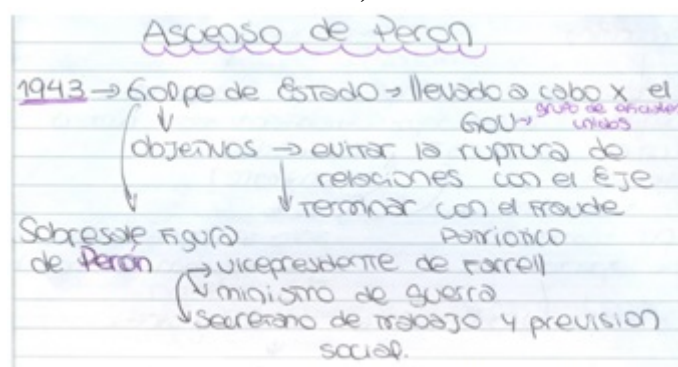 Ascenso de Peron
1943 → Golpe de Estado → llevado a cabo x el
GOU → grupo de oficiales unidos
objetivos → evitar la ruptura de
relaciones con el Eje
terminar con el fraude
patriotico
Sobresale figura
de Perón → vicepresidente de Farrell
ministro de guerra
Secretario de trabajo y prevision
social.